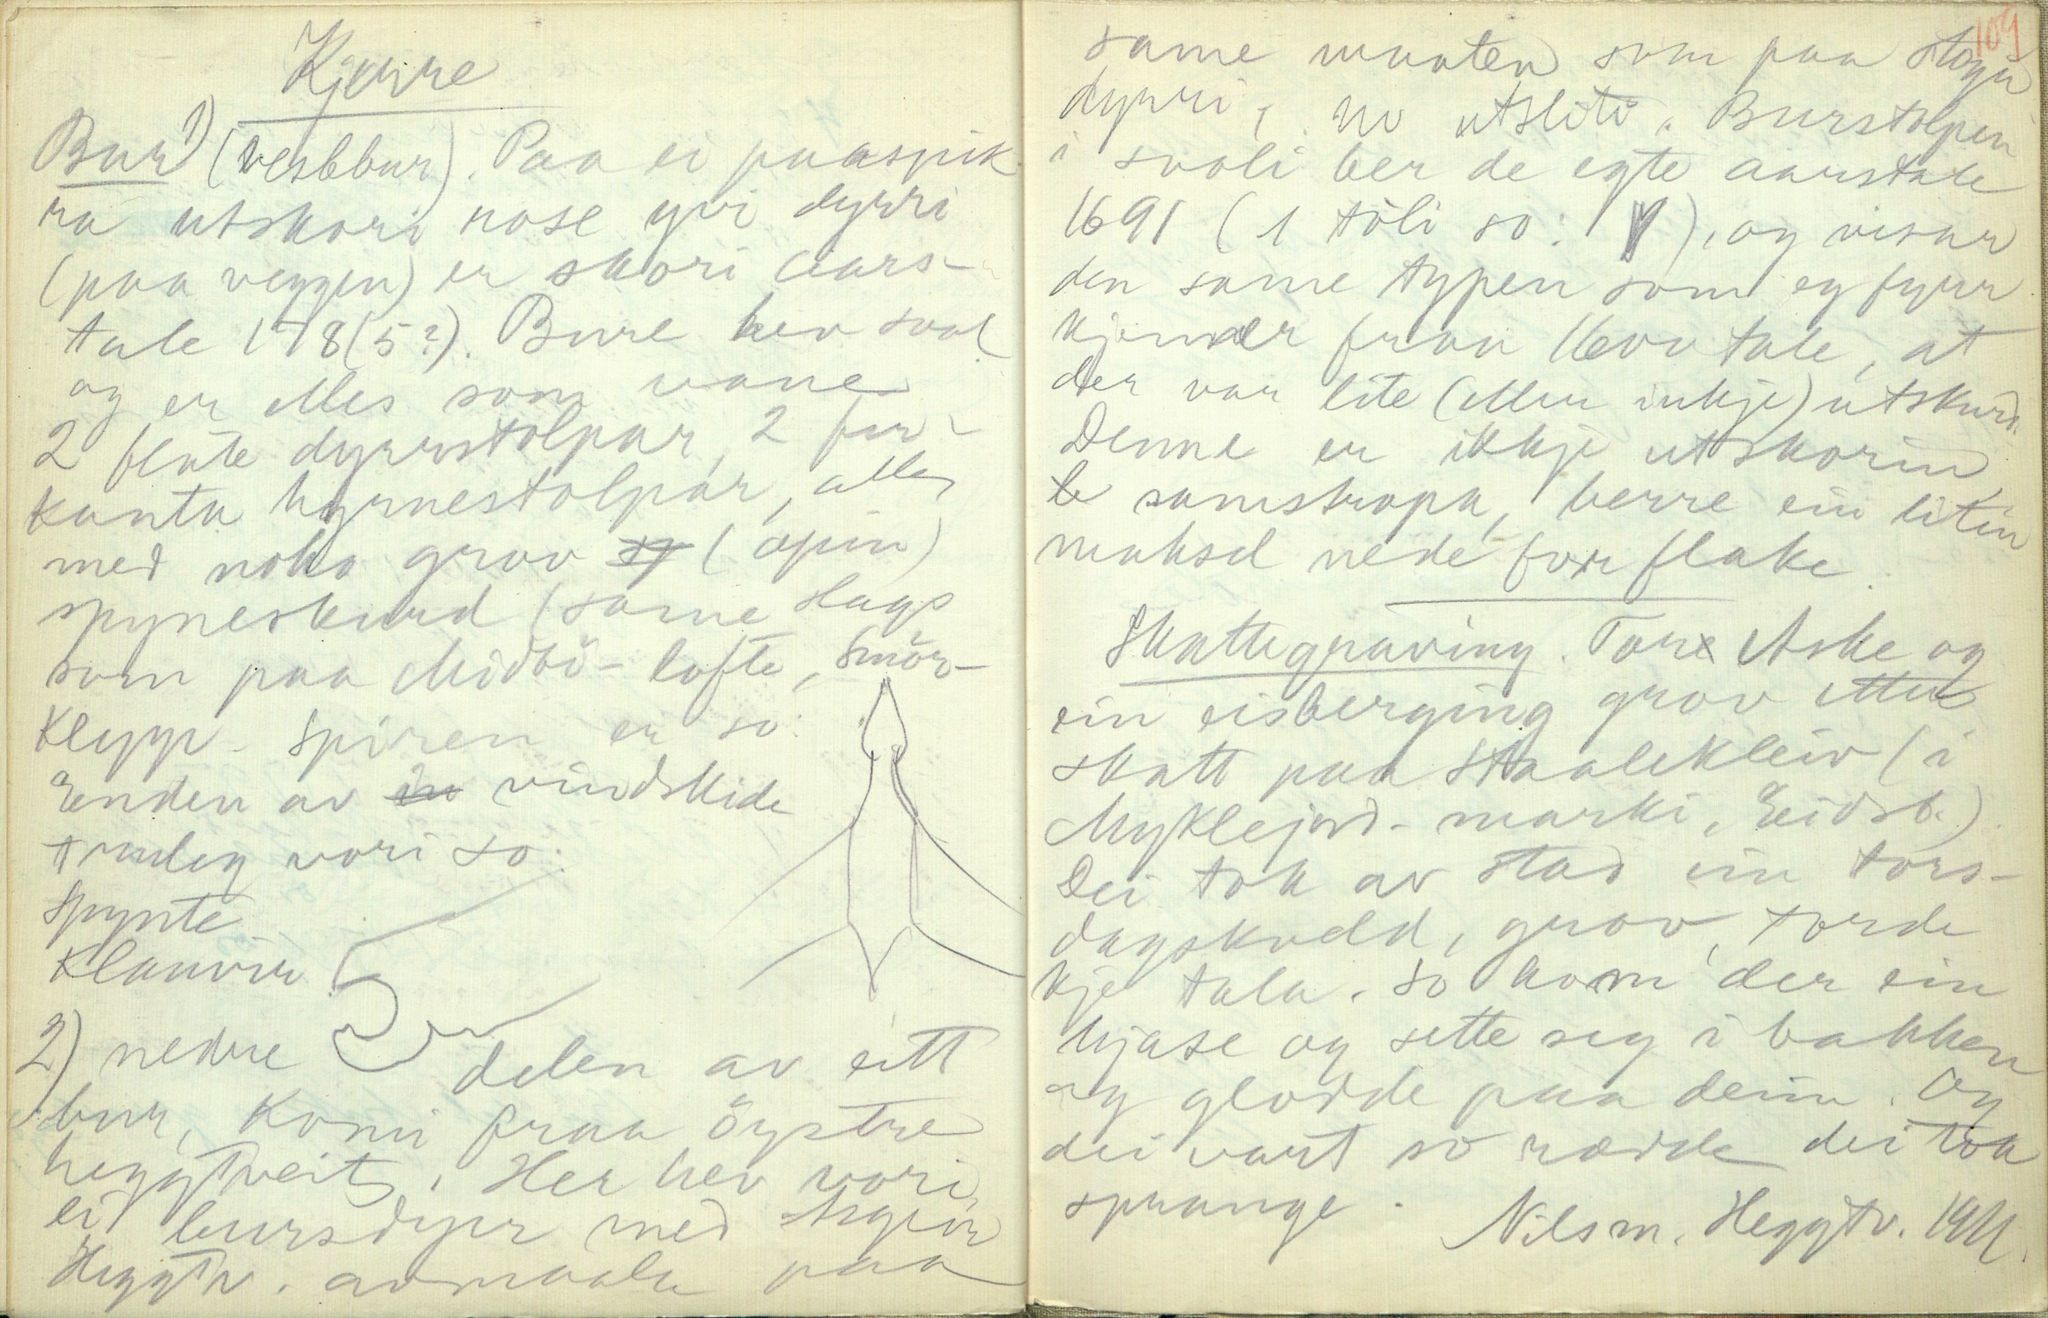 Kjovre
Bur 1) (vesbbur). Paa ei paaspik-
ra utskori rose yvi dyrri
(paa veggen) er skori aars-
tale 178(5?). Bure hev sval
og er elles som vane
2 flate dyrrstolpar, 2 fir-
kanta hyrnestolpar, alle
med noko grov (open)
spyneskurd (same slags
som paa Midbö-lofte, Smör-
klepp. Spiren er so:
Enden av vindskide
truleg vori so:
Spynte
Klauvir
2) nedre delen av eitt
bur, komi fraa öystre
heggtveit. Her hev vori
ei bursdyr med
Heggtv. avmaala paa
109
same maaten som paa stogu
dyrri, no utsliti. Burstolpen
i svoli ber de egte aarstale
1691 (1 töli so: ), og visar
den same typen som eg fyrr
kjender fraa 1600 tale, at
der var lite (ellen inkje) utskurd.
Denne er ikkje utskorin,
samskropa, berre ein liten
maksel nede for flake.
Skattegraving. Tore Aske og
ein eisberging grov etter
skatt paa Staalekleiv (i
Myklejord-marki, Eidsb.)
Dei tok av stad ein tors-
dagskveld, grov, torde
kje tala. So kom der ein
hjase og sette seg i bakken
og glodde paa deim. Og
dei vart so rædde dei tok
sprange.
Nils m. Heggtv. 1911.